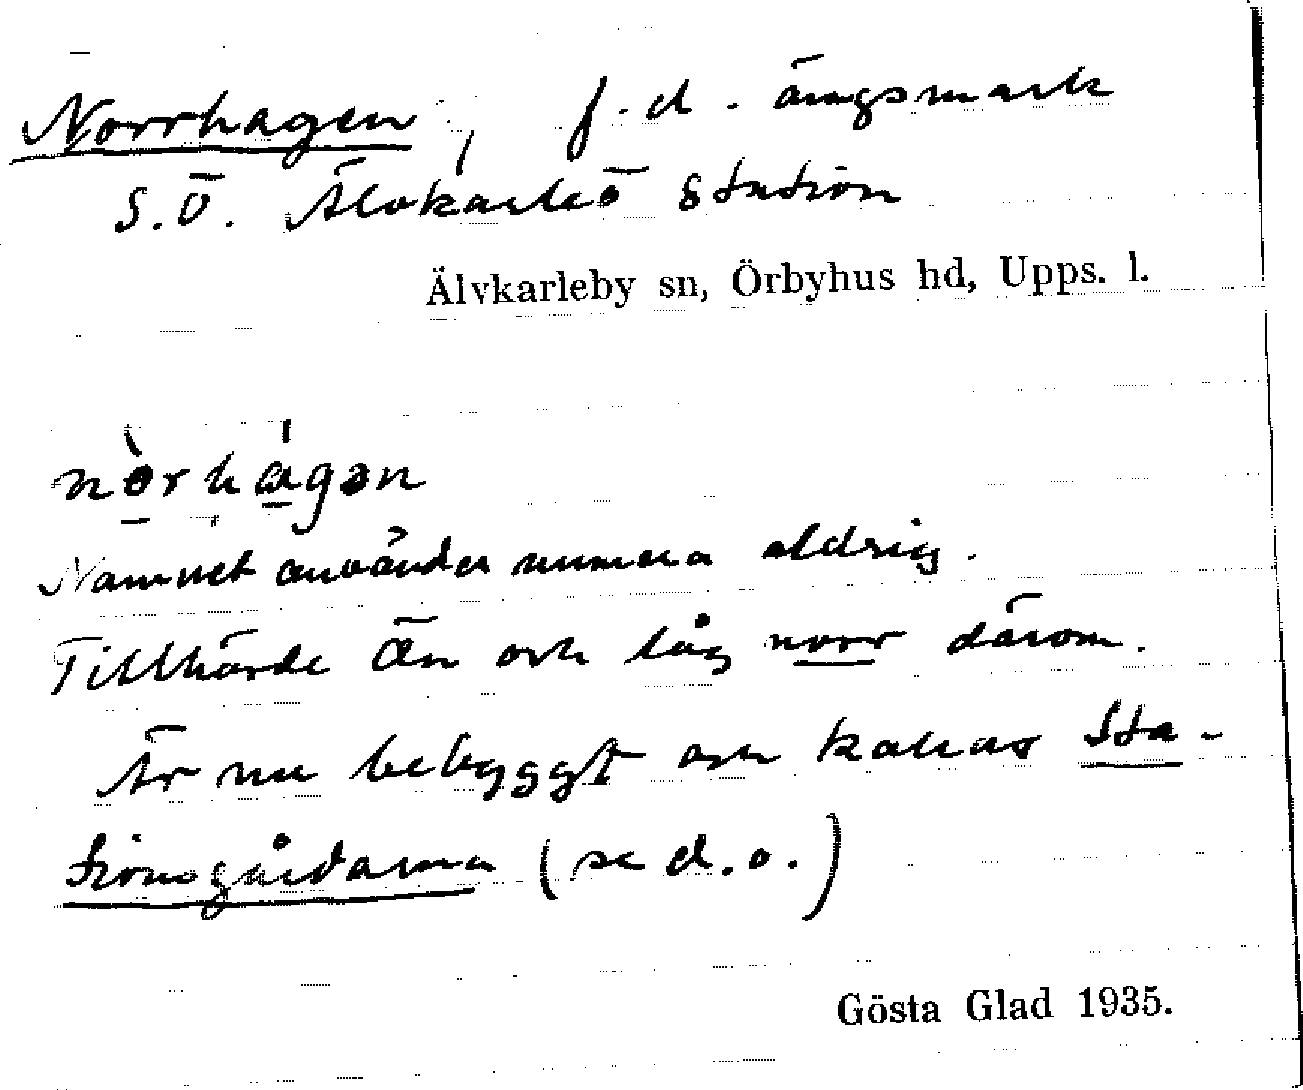 Norrhagen, f.d. ängsmark
S.Ö. Älvkarleö station
Älvkarleby sn, Örbyhus hd, Upps. l.
nòrhágən
Namnet användes numera aldrig.
Tillhörde Än och låg norr därom.
Är nu bebyggt och kallas Sta-
tionsgårdarna (se d.o.)
Gösta Glad 1935.